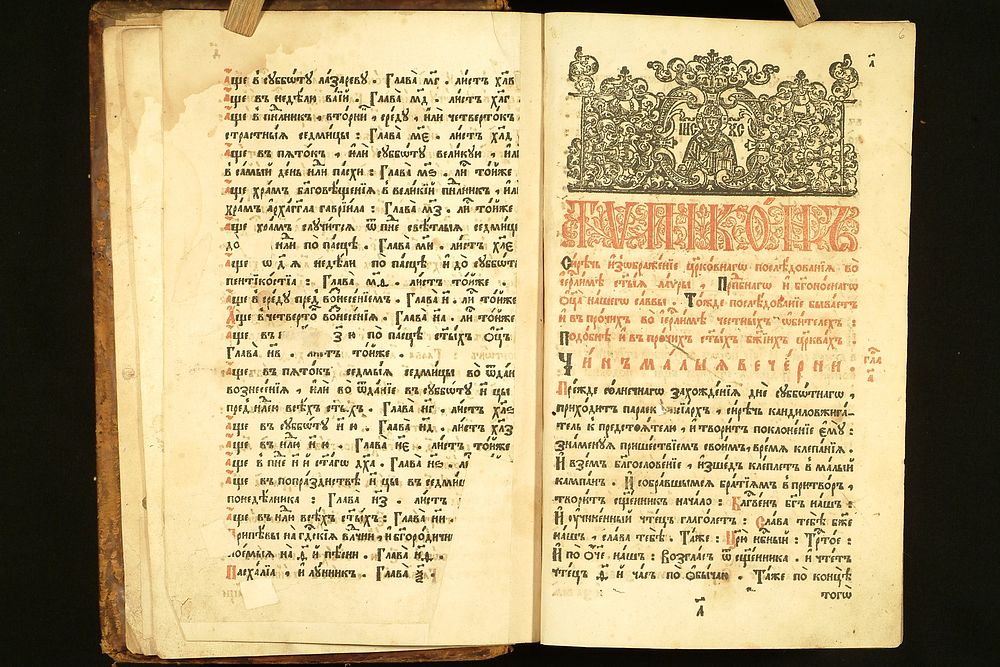 Аще в сꙋббѡтꙋ лазаревꙋ . Глава̀ м҃г . листъ
Аще въ недѣли ваїй . Глава̀ м҃д . листъ
Аще в п҃нлникъ , вторни , средꙋ , илѝ четвертокъ
страстныѧ седмицы : Глава̀ м҃є . листъ
Аще въ пѧтокъ , и҆лѝ сꙋббѡтꙋ великꙋи , и҆лѝ
в самый день и҆лѝ пасхи : Глава̀ м҃ѕ . ли то́йже
Аще храмъ бл҃говѣщенїѧ в великїй п҃нлникъ , и҆лѝ
храмъ а҆рха́гг҃ла гаврїила : Глава̀ м҃з . ли то́йже
Аще храмъ слꙋчитсѧ ѿ п҃не свѣтлыѧ седмицы
до и҆лѝ по пасцѣ . Глава̀ м҃и . листъ
Аще ѿ д҃ ѧ недѣли по пасцѣ и҆ до сꙋббѡты
пентикостїа : Глава̀ м҃ѳ . листъ то́йже .
Аще в средꙋ пред̾ вознесенїемъ . Глава̀ н҃ . ли то́йже
Аще в четверто вознесенїѧ . Глава̀ н҃а . ли то́йже
Аще въ з҃ ю по пасцѣ ст҃ыхъ ѻ҆ц҃ъ
Глава̀ н҃в . листъ то́йже .
Аще въ пѧтокъ седмыѧ седмицы во ѿда́н
вознесенїѧ , и҆лѝ во ѿда́нїе въ сꙋббѡтꙋ и҃ цы
пред̾ н҃лею всѣхъ ст҃ыхъ . Глава̀ н҃г . листъ
Аще въ сꙋббѡтꙋ н҃ ю . Глава̀ н҃д . листъ
Аще въ н҃лю н҃ ю . Глава̀ н҃є . листъ то́йже
Аще в п҃не н҃ и҆ ст҃а́гѡ дх҃а . Глава̀ н҃ѕ .
Аще въ попразднствѣ н҃ цы , въ седмиц
понедѣлника : Глава̀ н҃з . листъ
Аще въ н҃лю всѣхъ ст҃ыхъ : Глава̀ н҃и .
Припѣвы на гд҇скїѧ вл҃чни , и҆ бг҃ородичн
поемыѧ на ѳ҃ й пѣсни . Глава̀ н҃ѳ .
Пасхалїа , и҆ лꙋнникъ . Глава̀ ѯ҃ .
а҃
6
ІИС ХС
ТѴПІКО́НЪ
Сирѣчь и҆з̾ѡбраже́нїе цр҃ко́внагѡ послѣ́дованїѧ во
і҆ер҇лимѣ ст҃ы́ѧ ла́ѵры , Прп҇бнагѡ и҆ бг҃оно́снагѡ
ѻ҆ц҃а̀ на́шегѡ са́ввы . То́жде послѣ́дованїе быва́етъ
и҆ в про́чихъ во і҆ер҇лимѣ честны́хъ ѻ҆би́телехъ :
Подо́бнѣ и҆ въ про́чихъ ст҃ы́хъ бж҃їихъ цр҃квахъ :
ЧИ́НЪ МА́ЛЫѦ ВЕЧЕ́РНИ .
гла а҃
Пре́жде со́лнечнагѡ захожде́нїѧ днѐ сꙋббѡ́тнагѡ ,
прихо́дитъ параекклисїархъ , си́рѣчь кандиловжига́
тель к̾ предстоѧ́телю , и҆ твори́тъ поклоне́нїе є҆мꙋ̀ :
Зна́менꙋѧ прише́ствїемъ свои́мъ , вре́мѧ клепа́нїѧ .
И҆ взе́мъ бл҃гослове́нїе , и҆зше́дъ кле́плетъ в ма́лый
кампа́нъ . И҆ собра́вшимсѧ бра́тїѧмъ в притво́ръ ,
твори́тъ сщ҃е́нникъ нача́ло : Бл҃гве́нъ бг҃ъ на́шъ :
И҆ ᲂу҆чине́нный чте́цъ глаго́летъ : Сла́ва тебѣ̀ бж҃е
на́шъ , сла́ва тебѣ̀ . Та́же : Цр҃ю̀ нб҇ный : Трист҃о́е :
И҆ по ѻ҆́ч҃е . на́шъ : Во́згласъ ѿ сщ҃е́нника . и҆ чте́тъ
чте́цъ ѳ҃ й ча́съ по ѻ҆бы́чаю . Та́же по концѣ̀
тогѡ̀
а҃